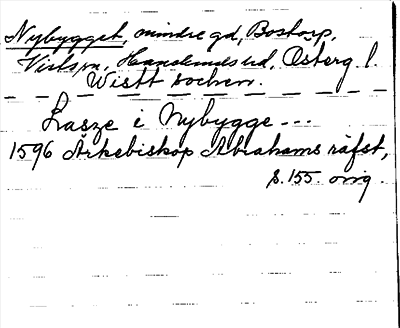 Nybygget, mindre gd, Bostorp,
Vists sn, Hanekinds hd, Österg. l.
Wistt sochen.
Lasze i Nybygge ---
1596 Ärkebiskop Abrahams räfst,
s. 155. orig.